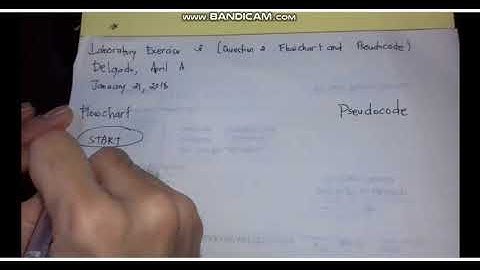 www.BANDICAM.com
Laboratory Exercise [Question 2 Flowchart and Pseudocode]
Delgado, April A
January 21, 2018
Flowchart
Pseudocode
START